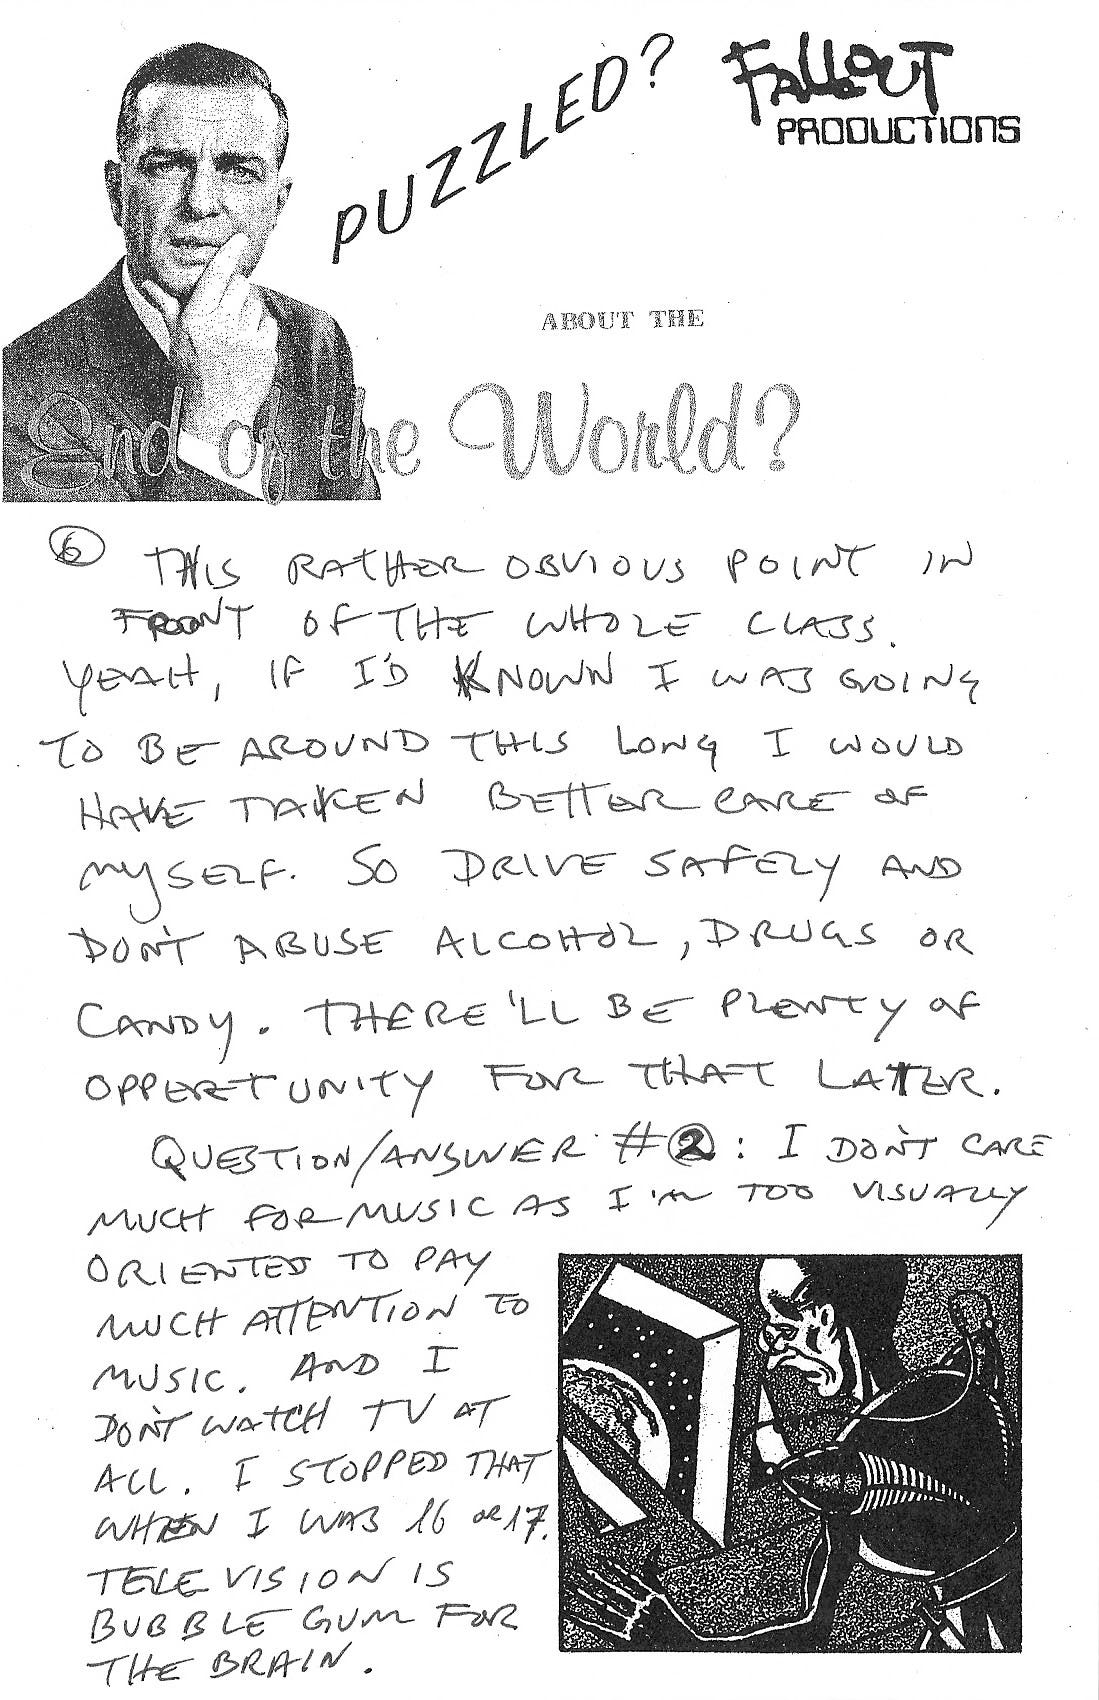 PUZZLED?
FALLOUT
PRODUCTIONS
ABOUT THE
End of the World?
6 THIS RATHER OBVIOUS POINT IN
FRONT OF THE WHOLE CLASS.
YEAH, IF I'D KNOWN I WAS GOING
TO BE AROUND THIS LONG I WOULD
HAVE TAKEN BETTER CARE OF
MYSELF. SO DRIVE SAFELY AND
DON'T ABUSE ALCOHOL, DRUGS OR
CANDY. THERE'LL BE PLENTY OF
OPPERTUNITY FOR THAT LATER.
QUESTION/ANSWER #2: I DON'T CARE
MUCH FOR MUSIC AS I'M TOO VISUALLY
ORIENTED TO PAY
MUCH ATTENTION TO
MUSIC. AND I
DON'T WATCH TV AT
ALL. I STOPPED THAT
WHEN I WAS 16 OR 17.
TELEVISION IS
BUBBLE GUM FOR
THE BRAIN.